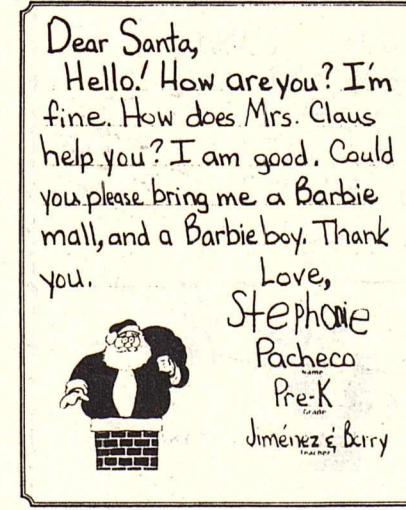 Dear Santa,
Hello! How are you? I'm
fine. How does Mrs. Claus
help you? I am good. Could
you please bring me a Barbie
mall, and a Barbie boy. Thank
you.
Love,
Stephanie
Pacheco
Name
Pre-K
Grade
Jiménez & Barry
Teacher